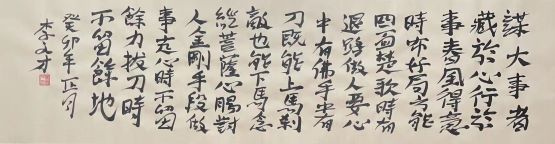 謀大事者
藏於心行於
事春風得意
時佈好局方能
四面楚歌時有
退路做人要心
中有佛手中有
刀既能上馬刹
敵也能下馬念
經菩薩心腸對
人金剛手段做
事走心時不留
餘力拔刀時
不留餘地
癸卯年正月
李文才